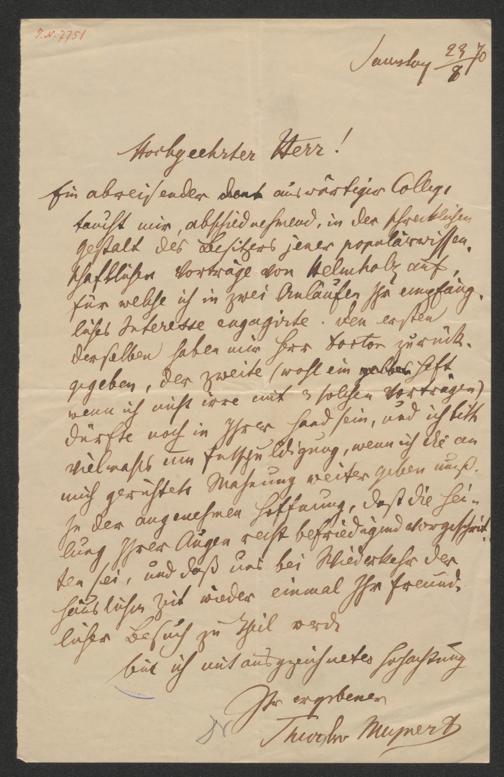 I.N. 7751
Samstag 29/8 70
Hochgeehrter Herr!
Ein abreisender auswärtiger College
taucht mir, abschiednehmend, in der schrecklichen
Gestalt des Besitzers jener populärwissen-
schaftlichen Vorträge von Helmholz auf,
für welche ich in zwei Anläufen Ihr empfäng-
liches Interesse engagirte. Den ersten
derselben haben mir Herr Doctor zurück-
gegeben, der zweite (wohl ein Heft
wenn ich nicht irre mit 3 solchen Vorträgen)
dürfte noch in Ihrer Hand sein, und ich bitte
vielmals um Entschuldigung, wenn ich die an
mich gerichtete Mahnung weiter geben muß.
In der angenehmen Hoffnung, daß die Hei-
lung Ihrer Augen recht befriedigend vorgeschrit-
ten sei, und daß uns bei Wiederkehr der
häuslichen Zeit wieder einmal Ihr freund-
licher Besuch zu Theil werde
bin ich mit ausgezeichneter Hochachtung
Ihr ergebener
Theodor Meynert